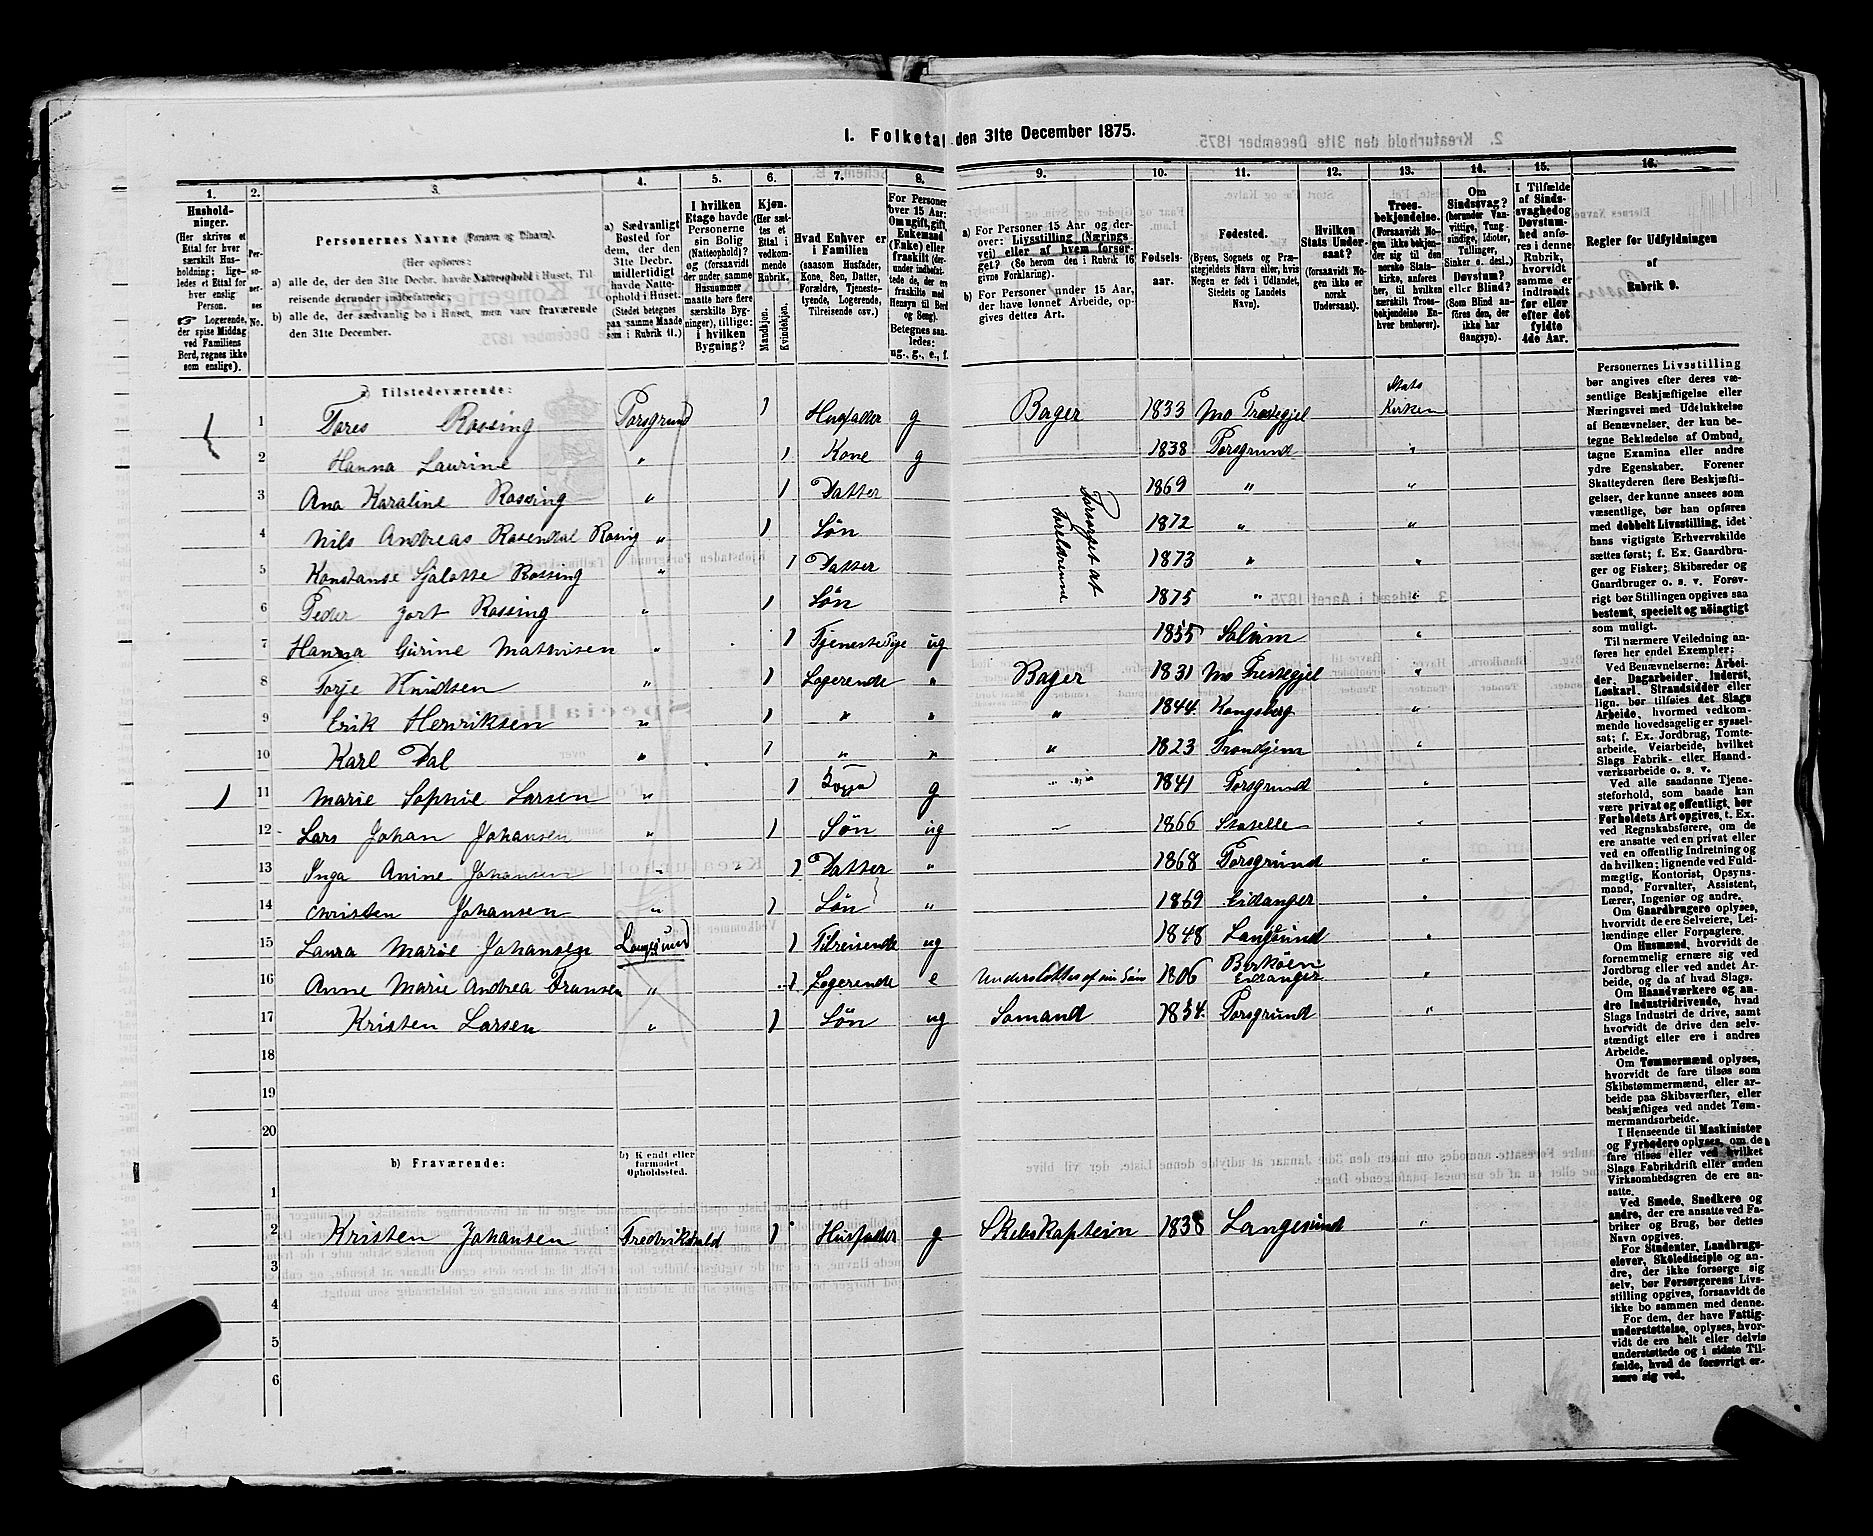 1. Folketal den 31te December 1875.
1. 2. 3. 4. 5. 6. 7. 8. 9. 10. 11. 12. 13. 14. 15. 16.
Husholdninger. (Her skrives et Ettal for hver særskilt Husholdning; ligeledes et Ettal for hver enslig Person. Logerende, der spise Middag ved Familiens Bord, regnes ikke som enslige).
Personernes No.
Personernes Navne (Fornavn og Tilnavn).
(Her opføres:
a) alle de, der den 31te Decbr. havde Natteophold i Huset, Tilreisende derunder indbefattede;
b) alle de, der sædvanlig bo i Huset, men vare fraværende den 31te December.
a) Sædvanligt Bosted for dem, der den 31te Decbr. midlertidigt havde Natteophold i Huset. (Stedet betegnes paa samme Maade som i Rubrik 11.)
I hvilken Etage havde Personerne sin Bolig (Natteophold)? og (forsaavidt der under samme Husnummer maatte høre flere særskilte Bygninger), tillige: i hvilken Bygning?
Kjøn. (Her sættes et Ettal i vedkommende Rubrik.
Mandkjøn. Kvindekjøn.
Hvad Enhver er i Familien (saasom Husfader, Kone, Søn, Datter, Forældre, Tjenestetyende, Logerende, Tilreisende osv.)
For Personer over 15 Aar: Om ugift, gift, Enkemand (Enke) eller fraskilt (derunder indbefattede de, der ere fraskilte med Hensyn til Bord og Seng). Betegnes saaledes: ug., g., e., f.
a) For Personer 15 Aar og derover: Livsstilling (Næringsvei) eller af hvem forsørget? (Se herom den i Rubrik 16 givne Forklaring).
b) For Personer under 15 Aar, der have lønnet Arbeide, opgives dettes Art.
Fødselsaar.
Fødested. (Byens, Sognets og Præstegjeldets Navn eller, hvis Nogen er født i Udlandet, Stedets og Landets Navn).
Hvilken Stats Undersaat? (forsaavidt Nogen ikke er norsk Undersaat).
Troesbekjendelse. (Forsaavidt Nogen ikke bekjender sig til den norske Statskirke, anføres her, til hvilken særskilt Troesbekjendelse Enhver henhører).
Om Sindssvag? (herunder Vanvittige, Tungsindige, Idioter, Tullinger, Sinker o. desl.) Døvstum? eller Blind? (Som Blind anføres den, der ikke har Gangsyn).
I Tilfælde af Sindssvaghed og Døvstumhed anføres i denne Rubrik, hvorvidt samme er indtraadt før eller efter det fyldte 4de Aar.
Regler for Udfyldningen af Rubrik 9.
a) Tilstedeværende:
1 1 Tores Rossing Porsgrund 1 Husfader g Bager 1833 Mo Tresegjel Stats Kirken
2 Hanna Laurine " 1 Kone g 1838 Porsgrund "
3 Ana Karaline Rossing " 1 Datter Forsorget af Foreldrenne 1869 " "
4 Nils Andreas Rosendal Rosing " 1 Søn 1872 " "
5 Konstanse Sjalotte Rossing " 1 Datter 1873 " "
6 Peder Rossing " 1 Søn 1875 " "
7 Hanna Gurine Mathisen " 1 Tjenestepige ug 1855 Solum "
8 Torje Knudsen " 1 Logerende " Bager 1831 Mo "
9 Erik Henriksen " 1 " " " 1844 Kongsberg "
10 Karl Dal " 1 " " " 1823 Trondjem "
1 11 Marie Sophie Larsen " 1 g 1841 Porsgrund "
12 Lars Johan Johansen " 1 Søn ug 1866 Statelle "
13 Inga Anine Johansen " 1 Datter " 1868 Porsgrund "
14 Christen Johansen " 1 Søn " 1869 Eidanger "
15 Laura Marie Johansen Langesund 1 Tilreisende ug 1848 Langesund "
16 Anne Marie Andrea Fransen " 1 Logerende e Understøttes af sin Søn 1806 Eidanger "
17 Kristen Larsen " 1 Søn ug Sømand 1834 Porsgrund "
18
19
20
b) Fraværende: b) Kjendt eller formodet Opholdssted.
1
2 Kristen Johansen Fredrikshald 1 Husfader g Skibskaptein 1838 Langesund "
3
4
5
6
Personernes Livsstilling bør angives efter deres væsentlige Beskjæftigelse eller Næringsvei med Udelukkelse af Benævnelser, der kun betegne Beklædelse af Ombud, tagne Examina eller andre ydre Egenskaber. Forener Skatteyderen flere Beskjæftigelser, der kunne ansees som væsentlige, bør han opføres med dobbelt Livsstilling, idet hans vigtigste Erhvervskilde sættes først; f. Ex. Gaardbruger og Fisker; Skibsreder og Gaardbruger o. s. v. Forøvrigt bør Stillingen opgives saa bestemt, specielt og nøiagtigt som muligt.
Til nærmere Veiledning anføres her endel Exempler:
Ved Benævnelserne: Arbeider, Dagarbeider, Inderst, Løskarl, Strandsidder eller lign. bør tilføies det Slags Arbeide, hvormed vedkommende hovedsagelig er sysselsat; f. Ex. Jordbrug, Tomtearbeide, Veiarbeide, hvilket Slags Fabrik- eller Haandværksarbeide o. s. v.
Ved alle saadanne Tjenesteforhold, som baade kan være privat og offentligt, bør Forholdets Art opgives, t. Ex. ved Regnskabsførere, om de ere ansatte ved en privat eller ved en offentlig Indretning og da hvilken; lignende ved Fuldmægtig, Kontorist, Opsynsmand, Forvalter, Assistent, Lærer, Ingeniør og andre.
Om Gaardbrugere oplyses, hvorvidt de ere Selveiere, Leilændinge eller Forpagtere.
Om Husmænd, hvorvidt de fornemmelig ernære sig ved Jordbrug eller ved andet Arbeide, og da af hvad Slags.
Om Haandværkere og andre Industridrivende, hvad Slags Industri de drive, samt hvorvidt de drive den selvstændigt eller ere i andres Arbeide.
Om Tømmermænd oplyses, hvorvidt de fare tilsøs som Skibstømmermænd, eller arbeide paa Skibsværfter, eller beskjæftiges ved andet Tømmermandsarbeide.
I Henseende til Maskinister og Fyrbødere oplyses, om de fare tilsøs eller ved hvilket Slags Fabrikdrift eller anden Virksomhedsgren de ere ansatte.
Ved Smede, Snedkere og andre, der ere ansatte ved Fabriker og Brug, bør dettes Navn opgives.
For Studenter, Landbrugselever, Skoledisciple og andre, der ikke forsørge sig selv, bør Forsørgerens Livsstilling opgives, forsaavidt de ikke bo sammen med denne.
For dem, der have Fattigunderstøttelse, oplyses, hvorvidt de ere helt eller delvis understøttede og i sidste Tilfælde, hvad de forøvrigt ernære sig ved.